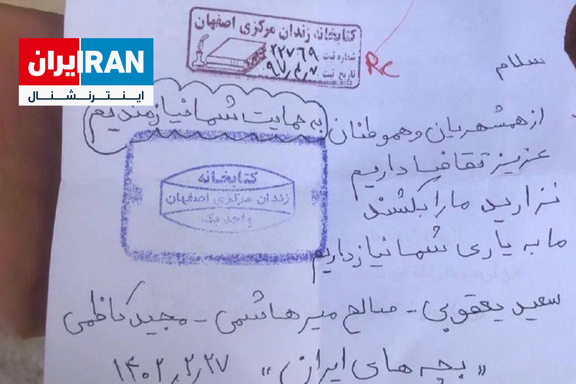 IRAN ایران
اینترنشنال
کتابخانه زندان مرکزی اصفهان
شماره ثبت ۲۲۷۶۹
تاریخ ثبت ۹۷,۴,۷
RC
سلام
از همشهریان و هموطنان به حمایت شما نیازمندیم
عزیز تقاضا داریم
نزارید ما را بکشند
ما به یاری شما نیاز داریم
کتابخانه
زندان مرکزی اصفهان
واحد یک
سعید یعقوبی - صالح میرهاشمی - مجید کاظمی
"بچه های ایران" ۱۴۰۲,۲,۲۷